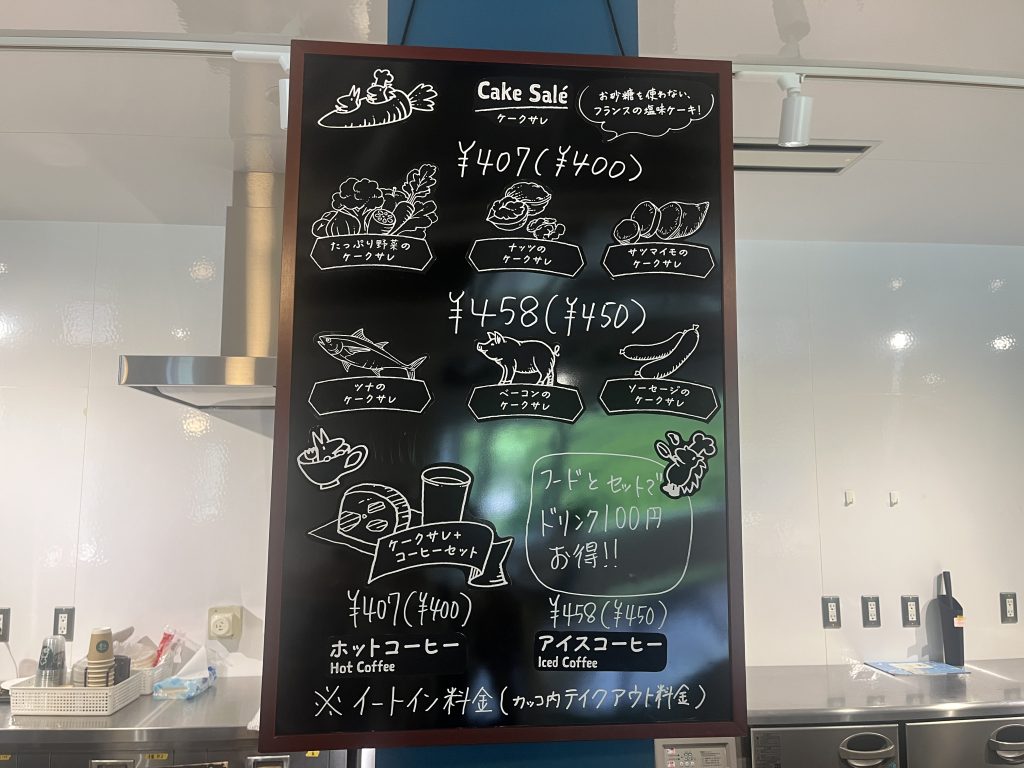 Cake Salé
ケークサレ
お砂糖を使わない、
フランスの塩味ケーキ!
¥407(¥400)
たっぷり野菜の
ケークサレ
ナッツの
ケークサレ
サツマイモの
ケークサレ
¥458(¥450)
ツナの
ケークサレ
ベーコンの
ケークサレ
ソーセージの
ケークサレ
ケークサレ+
コーヒーセット
フードとセットで
ドリンク100円
お得!!
¥407(¥400)
ホットコーヒー
Hot Coffee
¥458(¥450)
アイスコーヒー
Iced Coffee
※イートイン料金(カッコ内テイクアウト料金)